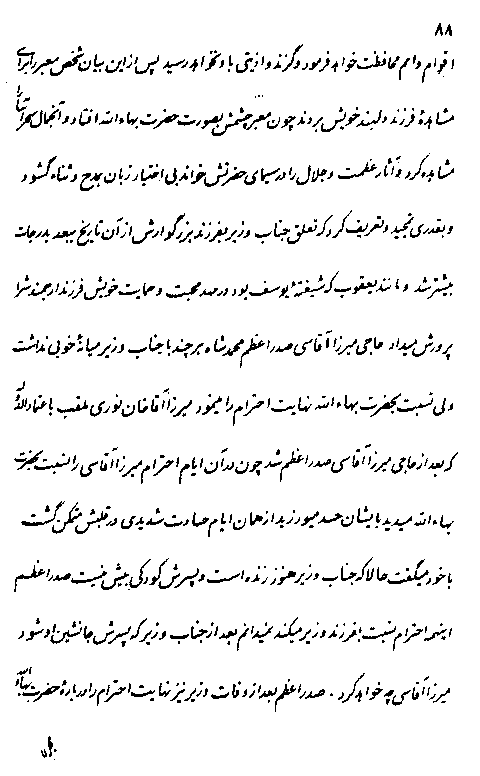 ۸۸
اقوام و امم محافظت خواهد فرمود و گزند و اذیتی باو نخواهد رسید پس از این بیان شخص معبر را برای
مشاهدهٔ فرزند دلبند خویش بردند چون معبر چشمش بصورت حضرت بهاءالله افتاد و آنجمال
مشاهده کرد و آثار عظمت و جلال را در سیمای حضرتش خواند بی اختیار زبان بمدح و ثناء گشود
و بقدری تمجید و تعریف کرد که تعلق جناب وزیر بفرزند بزرگوارش از آن تاریخ ببعد بدرجات
بیشتر شد و مانند یعقوب که شیفتهٔ یوسف بود در مهد محبت و حمایت خویش فرزند ارجمندش را
پرورش میداد حاجی میرزا آقاسی صدراعظم محمد شاه هر چند با جناب وزیر میانهٔ خوبی نداشت
ولی نسبت بحضرت بهاءالله نهایت احترام را مینمود میرزا آقا خان نوری ملقب باعتمادالدوله
که بعد از حاجی میرزا آقاسی صدراعظم شد چون در آن ایام احترام میرزا آقاسی را نسبت بحضرت
بهاءالله میدید بایشان حسد میورزید از همان ایام عداوت شدیدی در قلبش متمکن گشت
با خود میگفت حالا که جناب وزیر هنوز زنده است و پسرش کودکی بیش نیست صدراعظم
اینهمه احترام نسبت بفرزند وزیر میکند نمیدانم بعد از جناب وزیر که پسرش جانشین او شود
میرزا آقاسی چه خواهد کرد . صدراعظم بعد از وفات وزیر نیز نهایت احترام را دربارهٔ حضرت بهاءالله